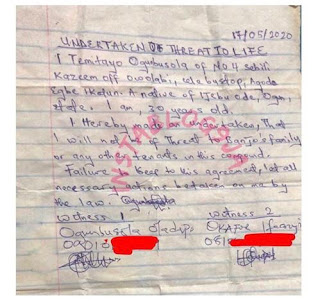 17/05/2020
UNDERTAKEN OF THREAT TO LIFE
I Temitayo Ogunbusola of No 4 Sabiti
Kazeem off owolabi, ile bustop, Agodo
Egbe Ikotun. A native of Ijebu ode, Ogun
state. I am, 30 years old.
I Hereby made an undertaken, That
I will not be of Threat to Banjo's family
or any other tenants in this compound.
Failure to keep to this agreement, let all
necessary actions betaken on me by
the law.
witness 1 witness 2
Ogunbusola Oladipo OKAFOR Ifeanyi
09010 081
INSTABLOG9JA